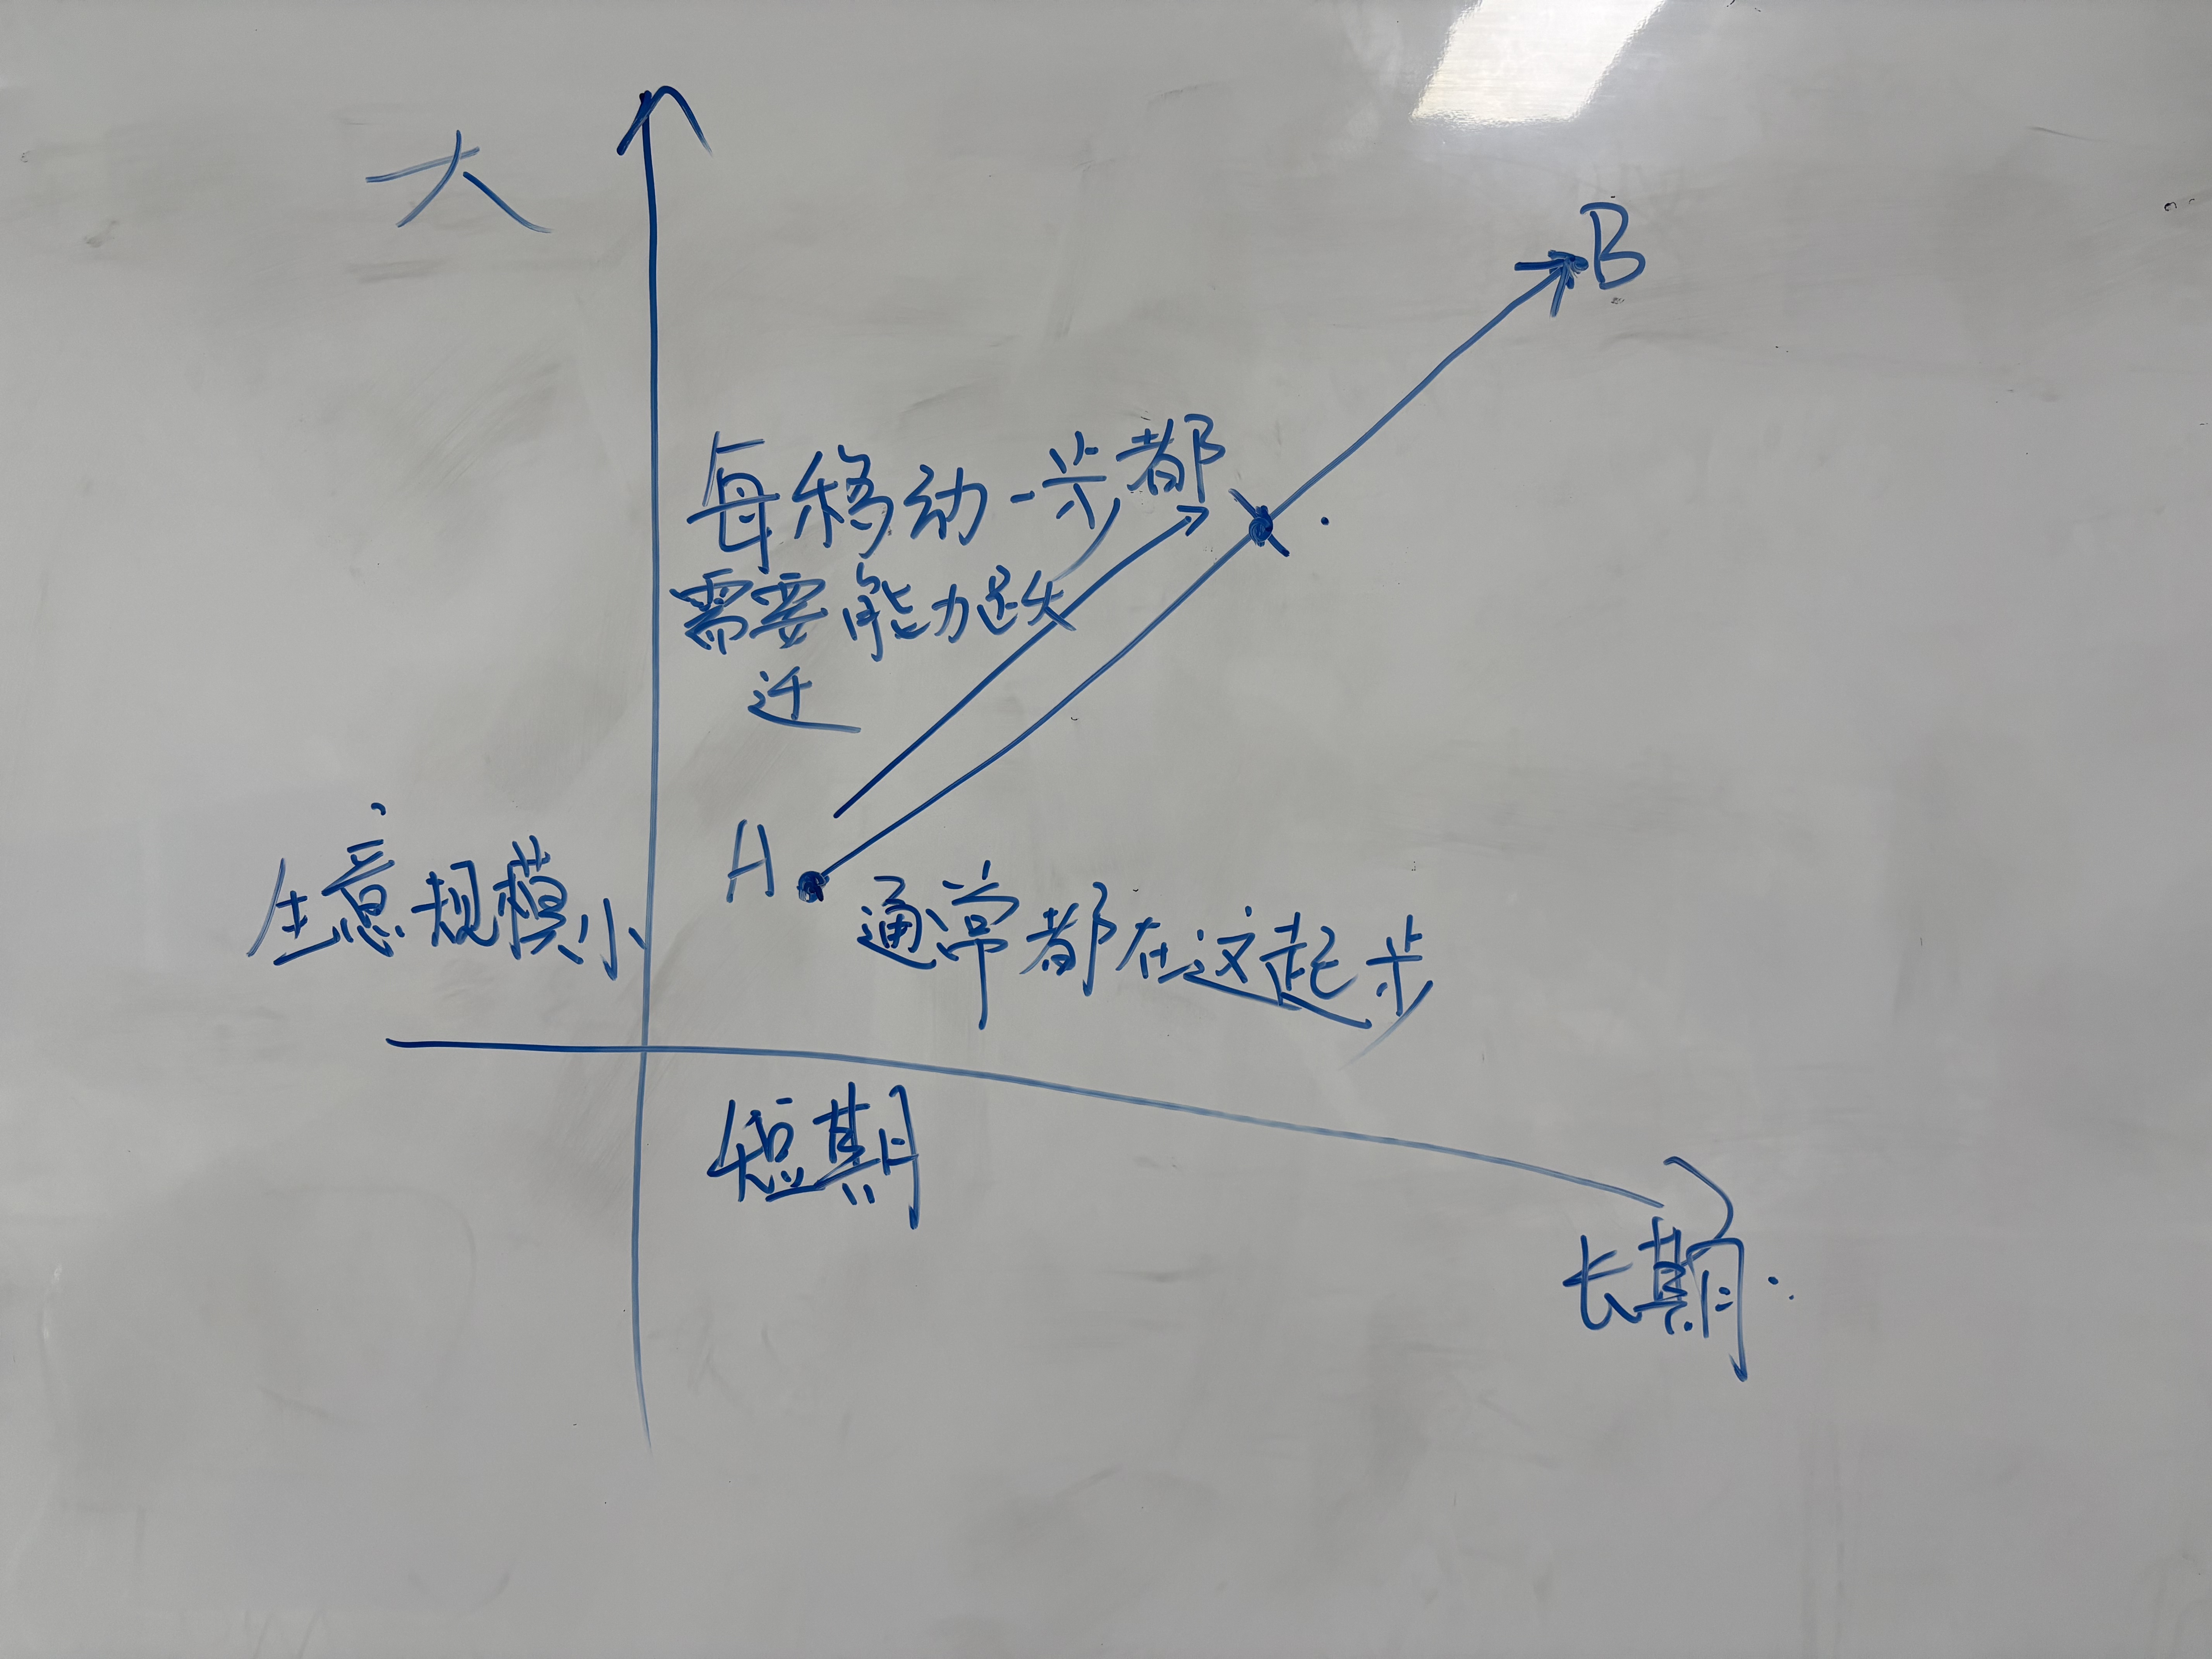 大
B
每移动一步都
需要能力跃
迁
A
生意规模小
通常都在这起步
短期
长期